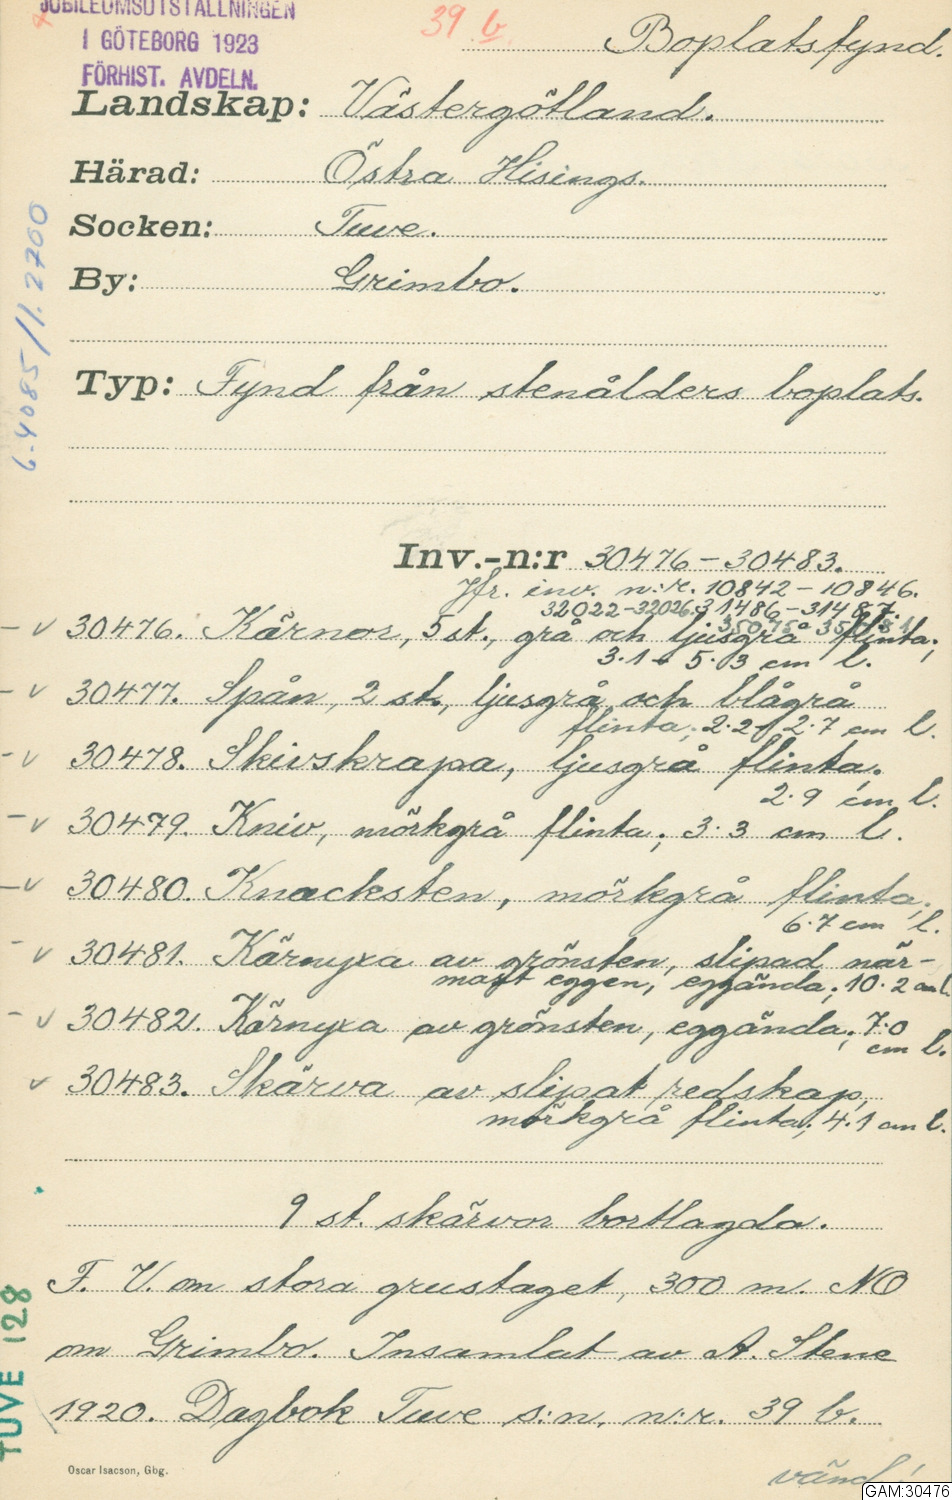 JUBILEUMSUTSTÄLLNINGEN
I GÖTEBORG 1923
FÖRHIST. AVDELN.
39 b.
Boplatsfynd.
Landskap: Västergötland.
Härad: Östra Hisings.
Socken: Tuve.
By: Grimbo.
Typ: Fynd från stenålders boplats.
Inv.-n:r 30476-30483.
Jfr. inv. n:r. 10842-10846.
32022-32026. 31486-31487.
30476. Kärnor, 5 st., grå och ljusgrå flinta;
3.1 - 5.3 cm l.
30477. Spån, 2 st., ljusgrå och blågrå
flinta; 2.2 - 2.7 cm l.
30478. Skivskrapa, ljusgrå flinta;
2.9 cm l.
30479. Kniv, mörkgrå flinta; 3.3 cm l.
30480. Knacksten, mörkgrå flinta;
6.7 cm l.
30481. Kärnyxa av grönsten, slipad när-
mast eggen, eggända; 10.2 cm l.
30482. Kärnyxa av grönsten, eggända; 7.0
cm l.
30483. Skärva av slipat redskap,
mörkgrå flinta; 4.1 cm l.
9 st. skärvor bortlagda.
F. V. om stora grustaget, 300 m. NO
om Grimbo. Insamlat av A. Stene
1920. Dagbok Tuve s:n, n:r. 39 b.
Oscar Isacson, Gbg.
vänd!
TUVE 128
GAM:30476